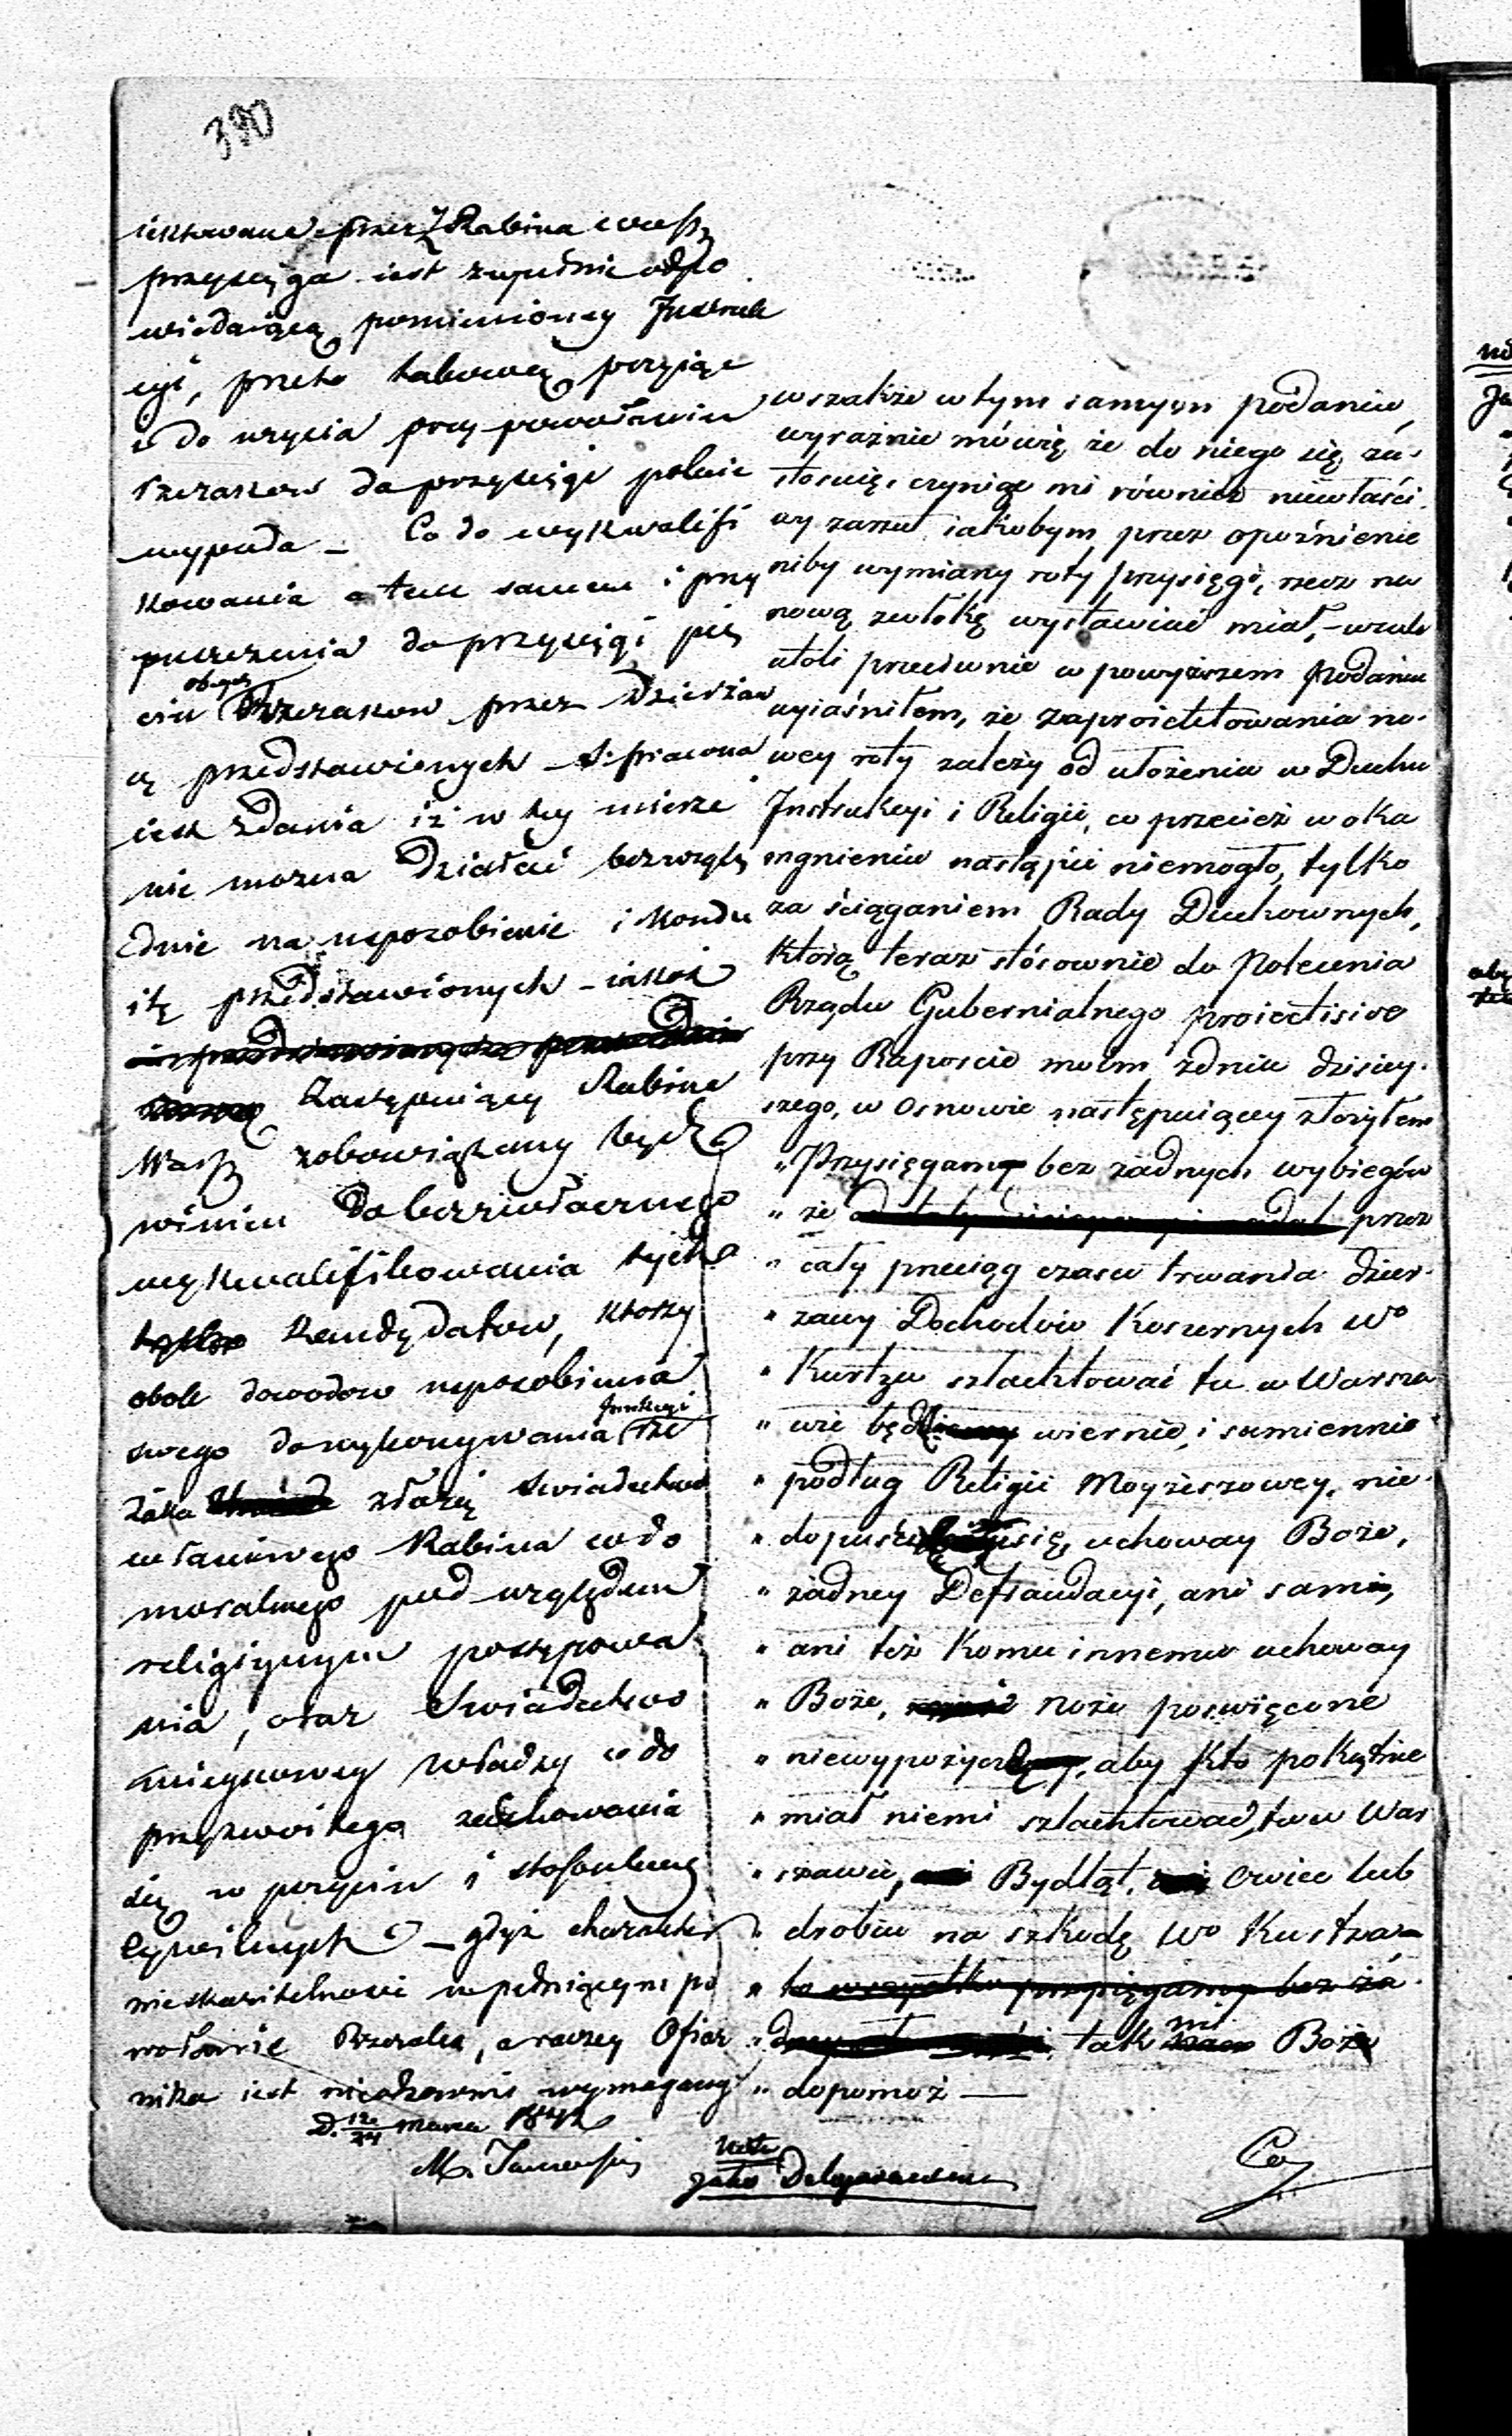 380
przez Z. Rabina
przysięga iest zupełnie odpo
wiedaiącą pomienioney Instruk
cyi, przeto takową przyiąć
i do użycia przy powołaniu
Rzezakow do przysięgi polnie
wypada _ Co do wykwalifi
kowania a tem samem i przy
puszczenia do przysięgi pię
ciu obcych Rzezakow przez Dzierżaw
cę przedstawionych _
iest zdania iż w tey mierze
nie można działać bezwzglę
dnie na usposobienie i Kondu
itę przedstawionych _ iakoż
Zastępuiący Rabina
Warsz zobowiązany bydź
winien do bezzwłocznego
wykwalifikowania tych
tylko Kandydatow, ktorzy
obok dowodow usposobienia
swego do wykonywania funkcyi Rze
zaka złożą swiadectwo
własciwego Rabina co do
moralnego pod względem
religiynym postępowa
nia, oraz swiadectwo
mieyscowey władzy co do
przyzwoitego zachowania
się w pożyciu i stosunkach
cywilnych _ gdyż charakter
nieskazitelności w pełniącym po
wołanie Rzezaka, a raczey Ofiar
nika iest nieodzownie wymagany
D. 12/24 Marca 1842
wszakże w tym samym podaniu,
wyraźnie mówię że do niego się za-
stosuię, czyniąc mi również niewłaści-
wy zarzut iakobym przez opoźnienie
niby wymiany roty przysięgi, rzecz na
nową zwłokę wystawiać miał, _ wcale
atoli przeciwnie w powyższem podaniu
wyiaśniłem, że zaproiektowania no-
wey roty zależy od ułożenia w Duchu
Instrukcyi i Religii, co przecież w oka
mgnieniu nastąpić niemogło, tylko
za ściąganiem Rady Duchownych,
którą teraz stósownie do Polecenia
Rządu Gubernialnego proiectisive
przy Raporcie moim z dnia dzisiey-
szego, w osnowie następuiącey złożyłem
„ Przysięgamy bez żadnych wybiegów
„ że przez
„ cały przeciąg czasu trwania dzier-
„ żawy Dochodów Koszernych Wo
„ Kurtza szlachtować tu w Warsza
„ wie będziemy wiernie, i sumiennie
„ podług Religii Moyżeszowey, nie-
„ dopuszczę się, uchoway Boże,
„ żadney Defraudacyi, ani sami,
„ ani też komu innemu uchoway
„ Boże, noże poswięcone
„ niewypożyczę, aby kto pokątnie
„ miał niemi szlachtować, tu w War
„ szawie, ani Bydląt, ani owiec lub
„ drobiu na szkodę Wo Kurtza _
„ to wszystko przysięgamy bez ża-
„ tak mi Boże
„ dopomoż _